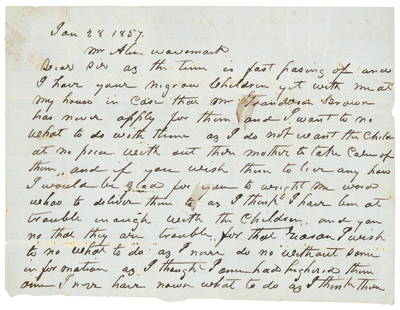 Jan 28 1857.
Mr Alen
Dear Sir as the time is fast pasing of and
I have your nigrow Children yet with me at
my house in Case that Mr Brown
has never apply for them and I want to no
what to do with them as I do not want the Childr
at no price with out there mother to take Care of
them, and if you wish them to any how
I would be glad for you to wright me word
whoo to deliver them to, as I think I have bin at
trouble enough with the Children, and you
no that they are trouble, for that reason I wish
to no what to do as I never do no without some
information as I thought I had highered them
and I never have nown what to do as I think them